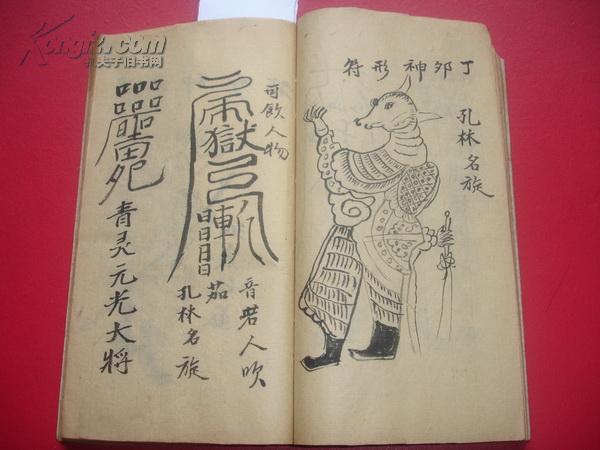 丁夘神形符
孔林名旋
可飲人物
音若人吹
茄
孔林名旋
青灵元光大將
Kongfz.com
孔夫子旧书网